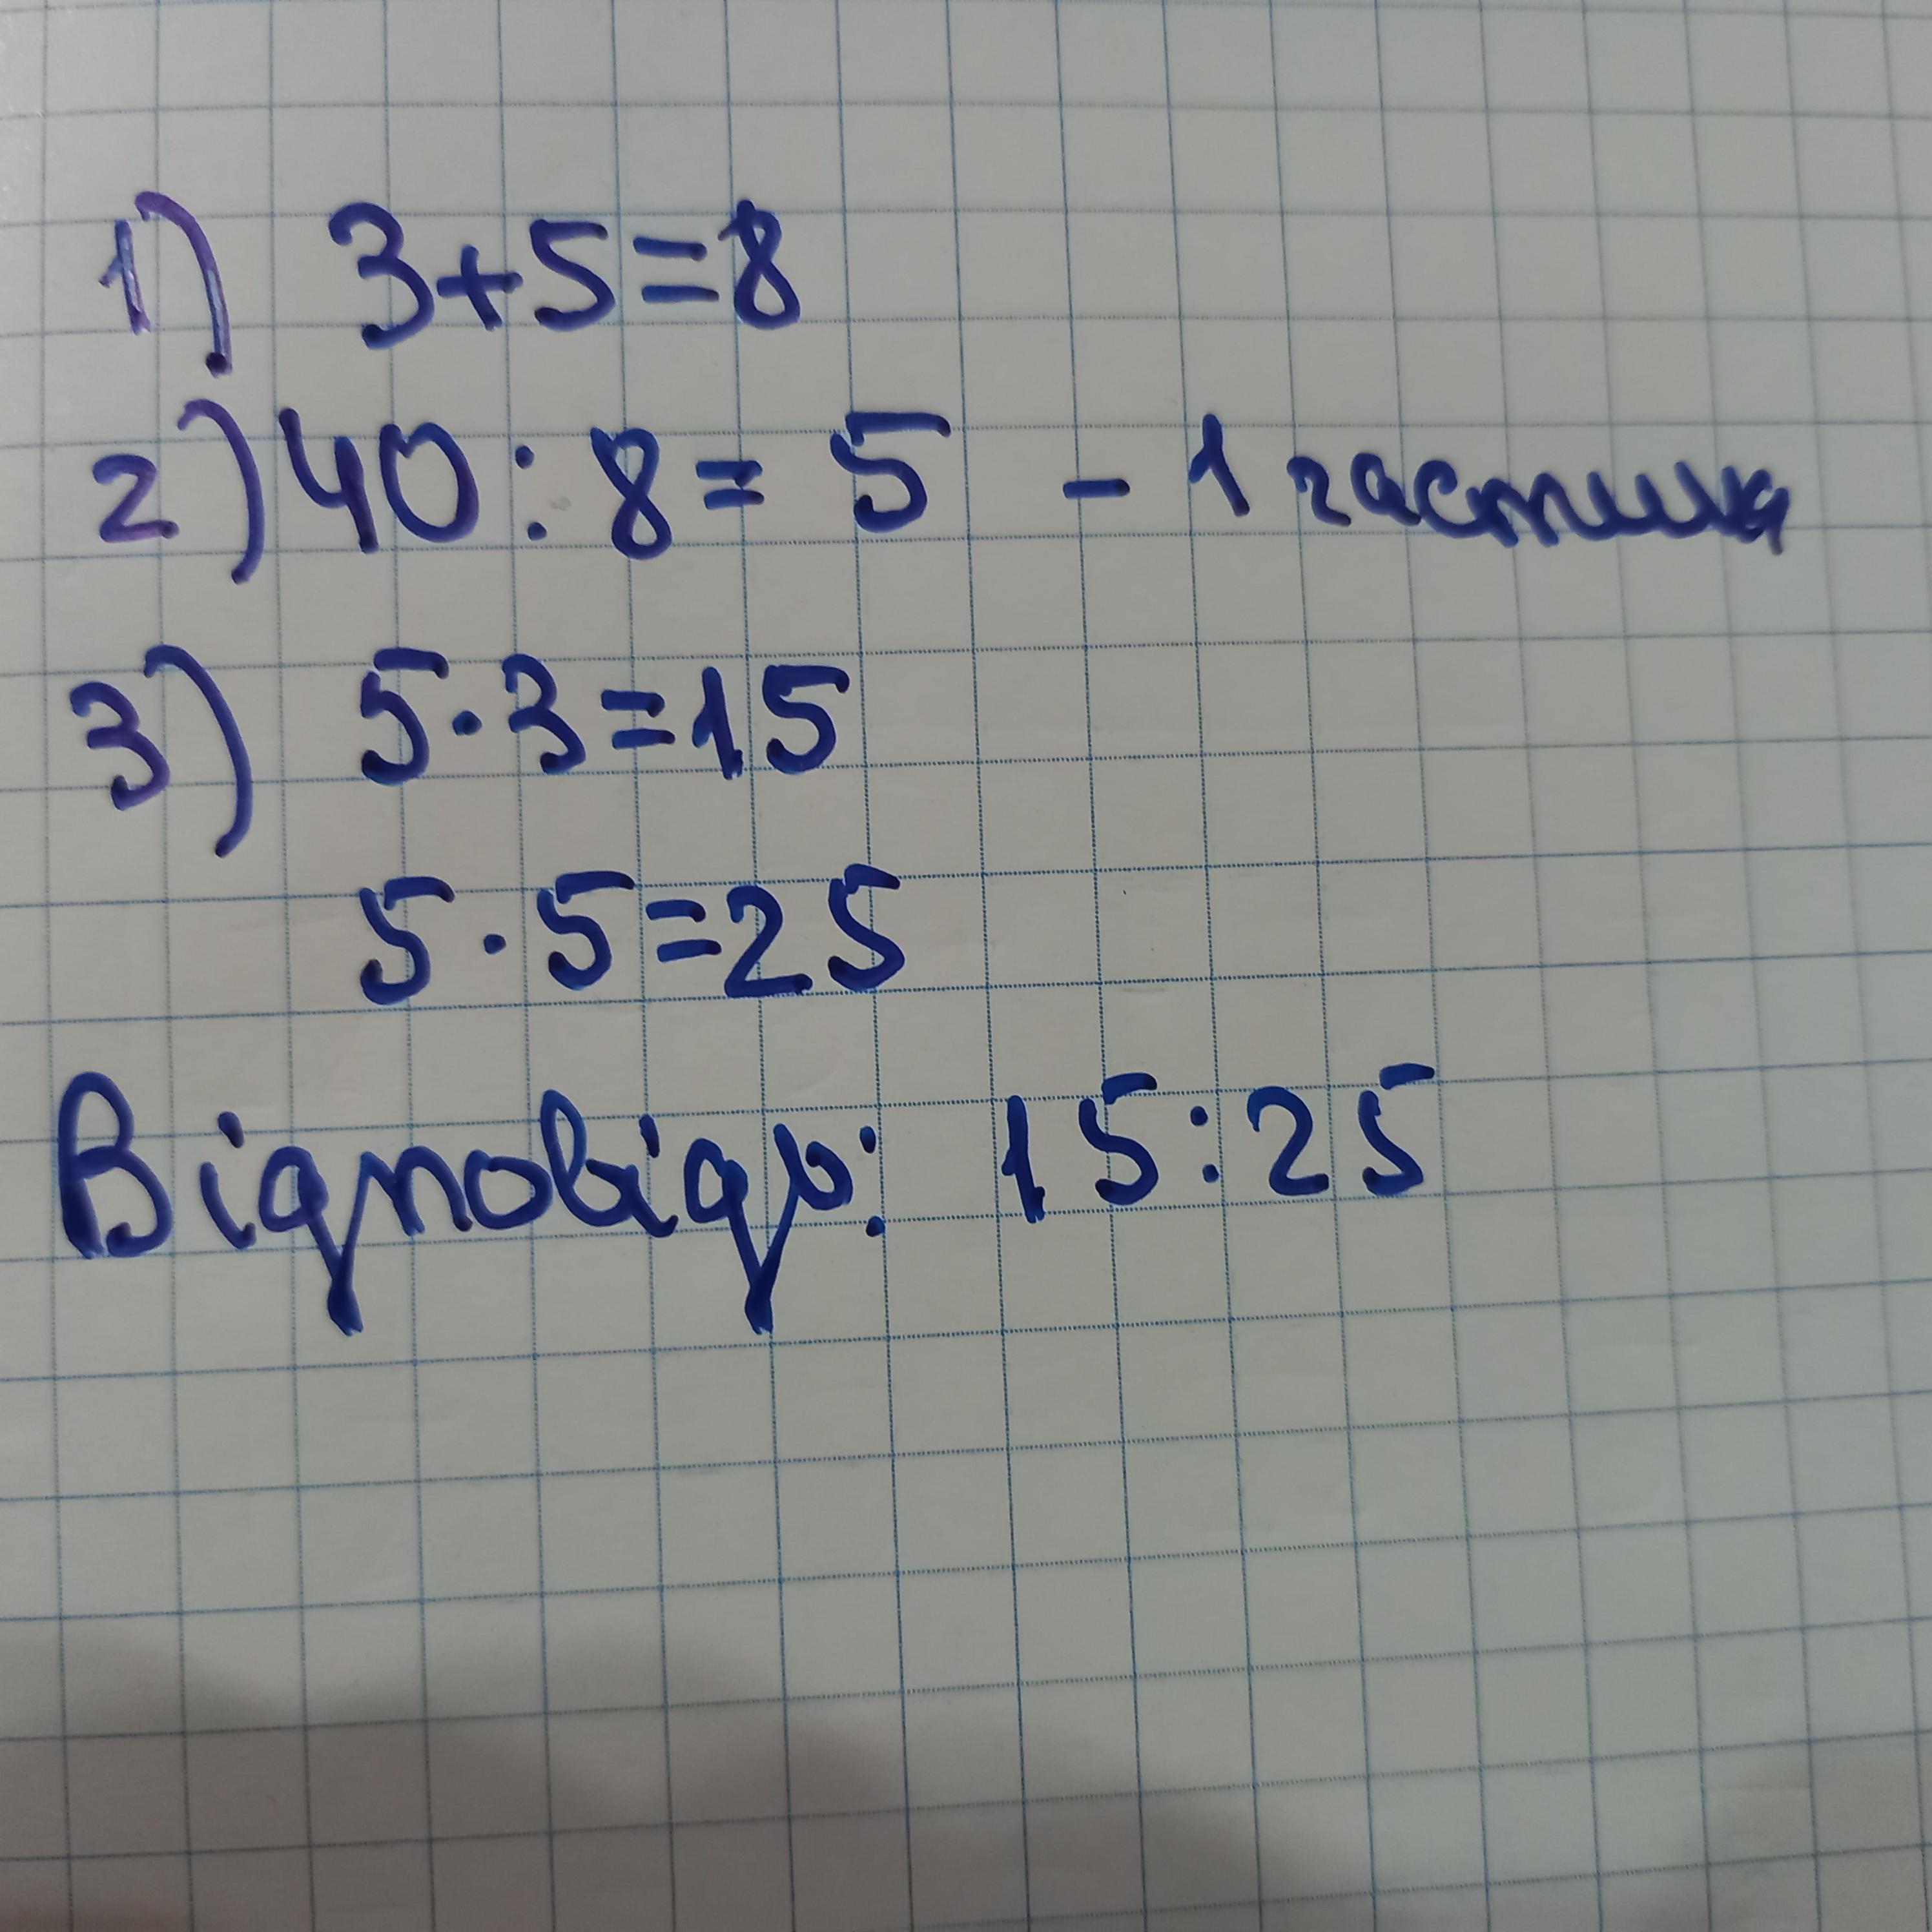 1) 3+5=8
2) 40 : 8 = 5 - 1 частина
3) 5·3=15
5·5=25
Відповідь: 15:25